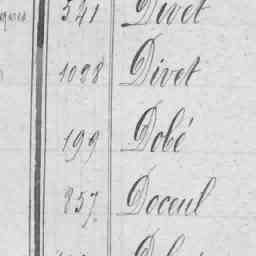 521 Divet
1028 Divet
199 Dobé
857 Doceul